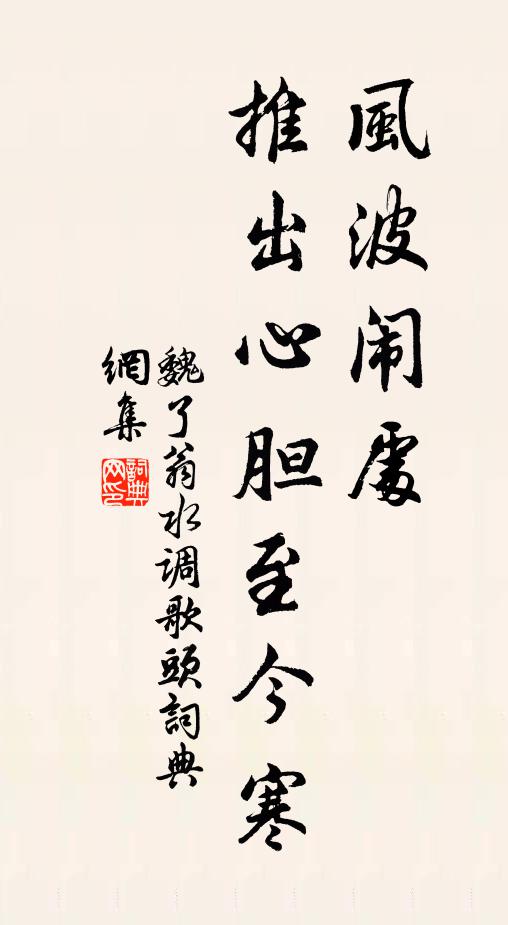 風波闹處
推出心胆至今寒
魏了翁水调歌頭詞典
網集
詞典
网印